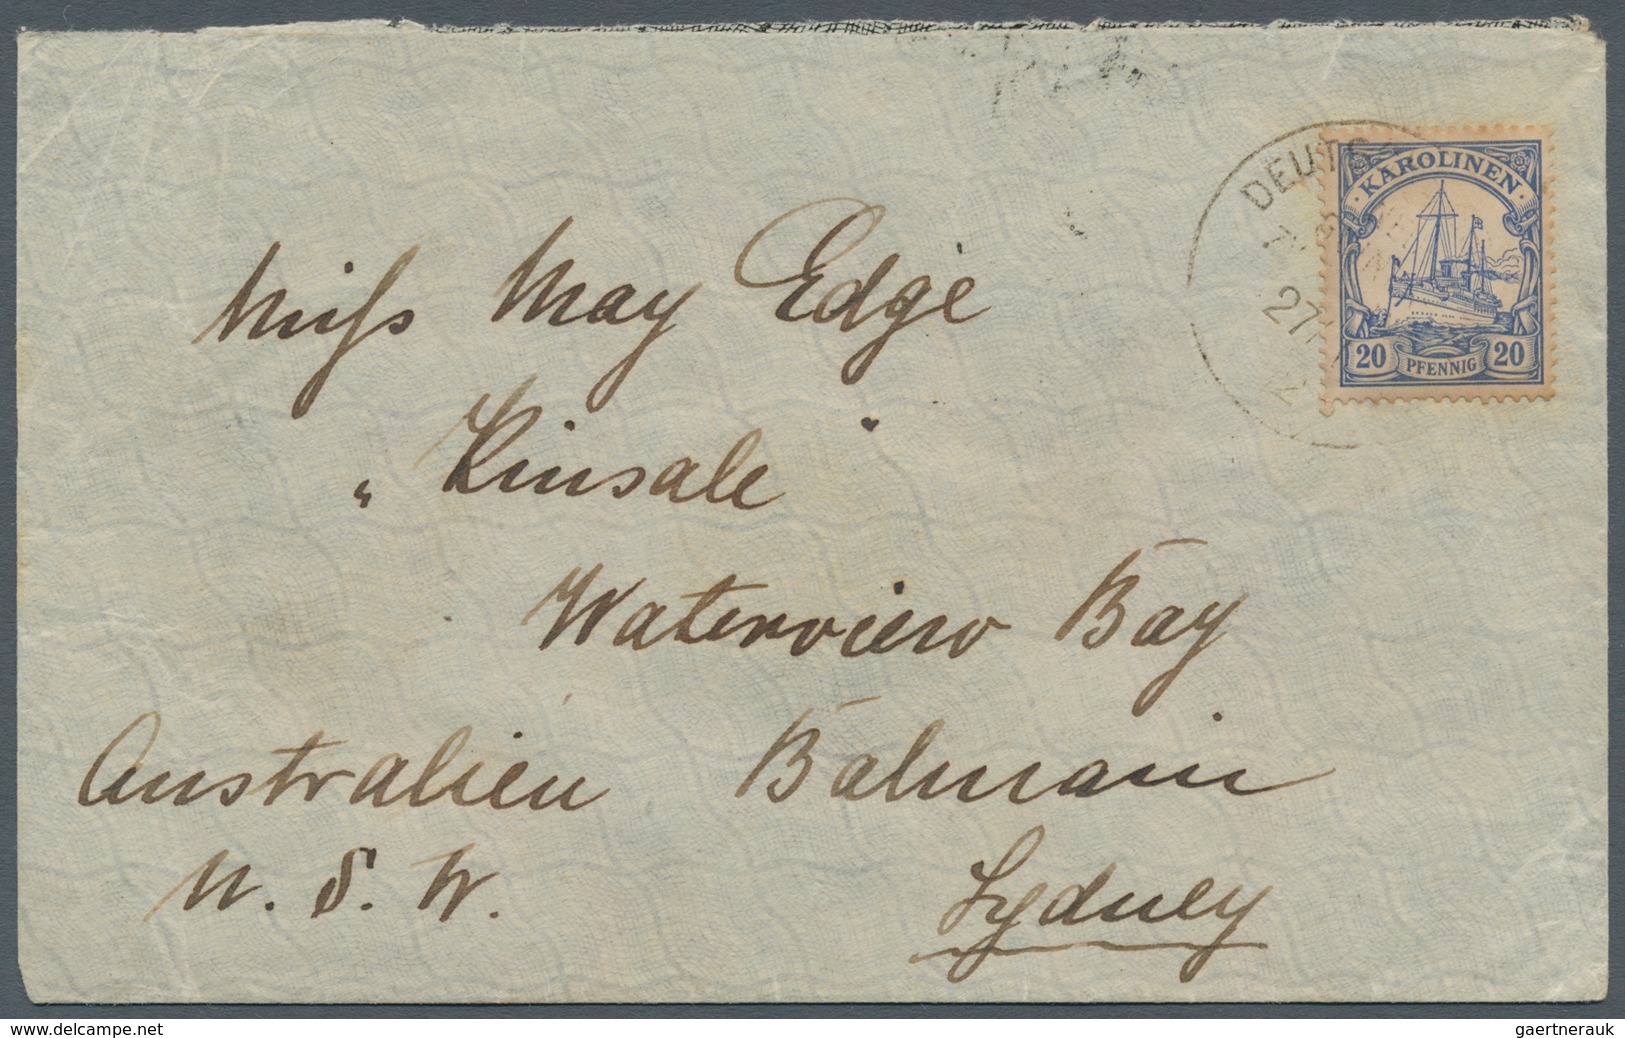 DEUTS
27
KAROLINEN
20 PFENNIG 20
Miss May Edge
"Kinsale"
Waterview Bay
Australien Balmain
N. S. W. Sydney
www.delcampe.net
gaertnerauk